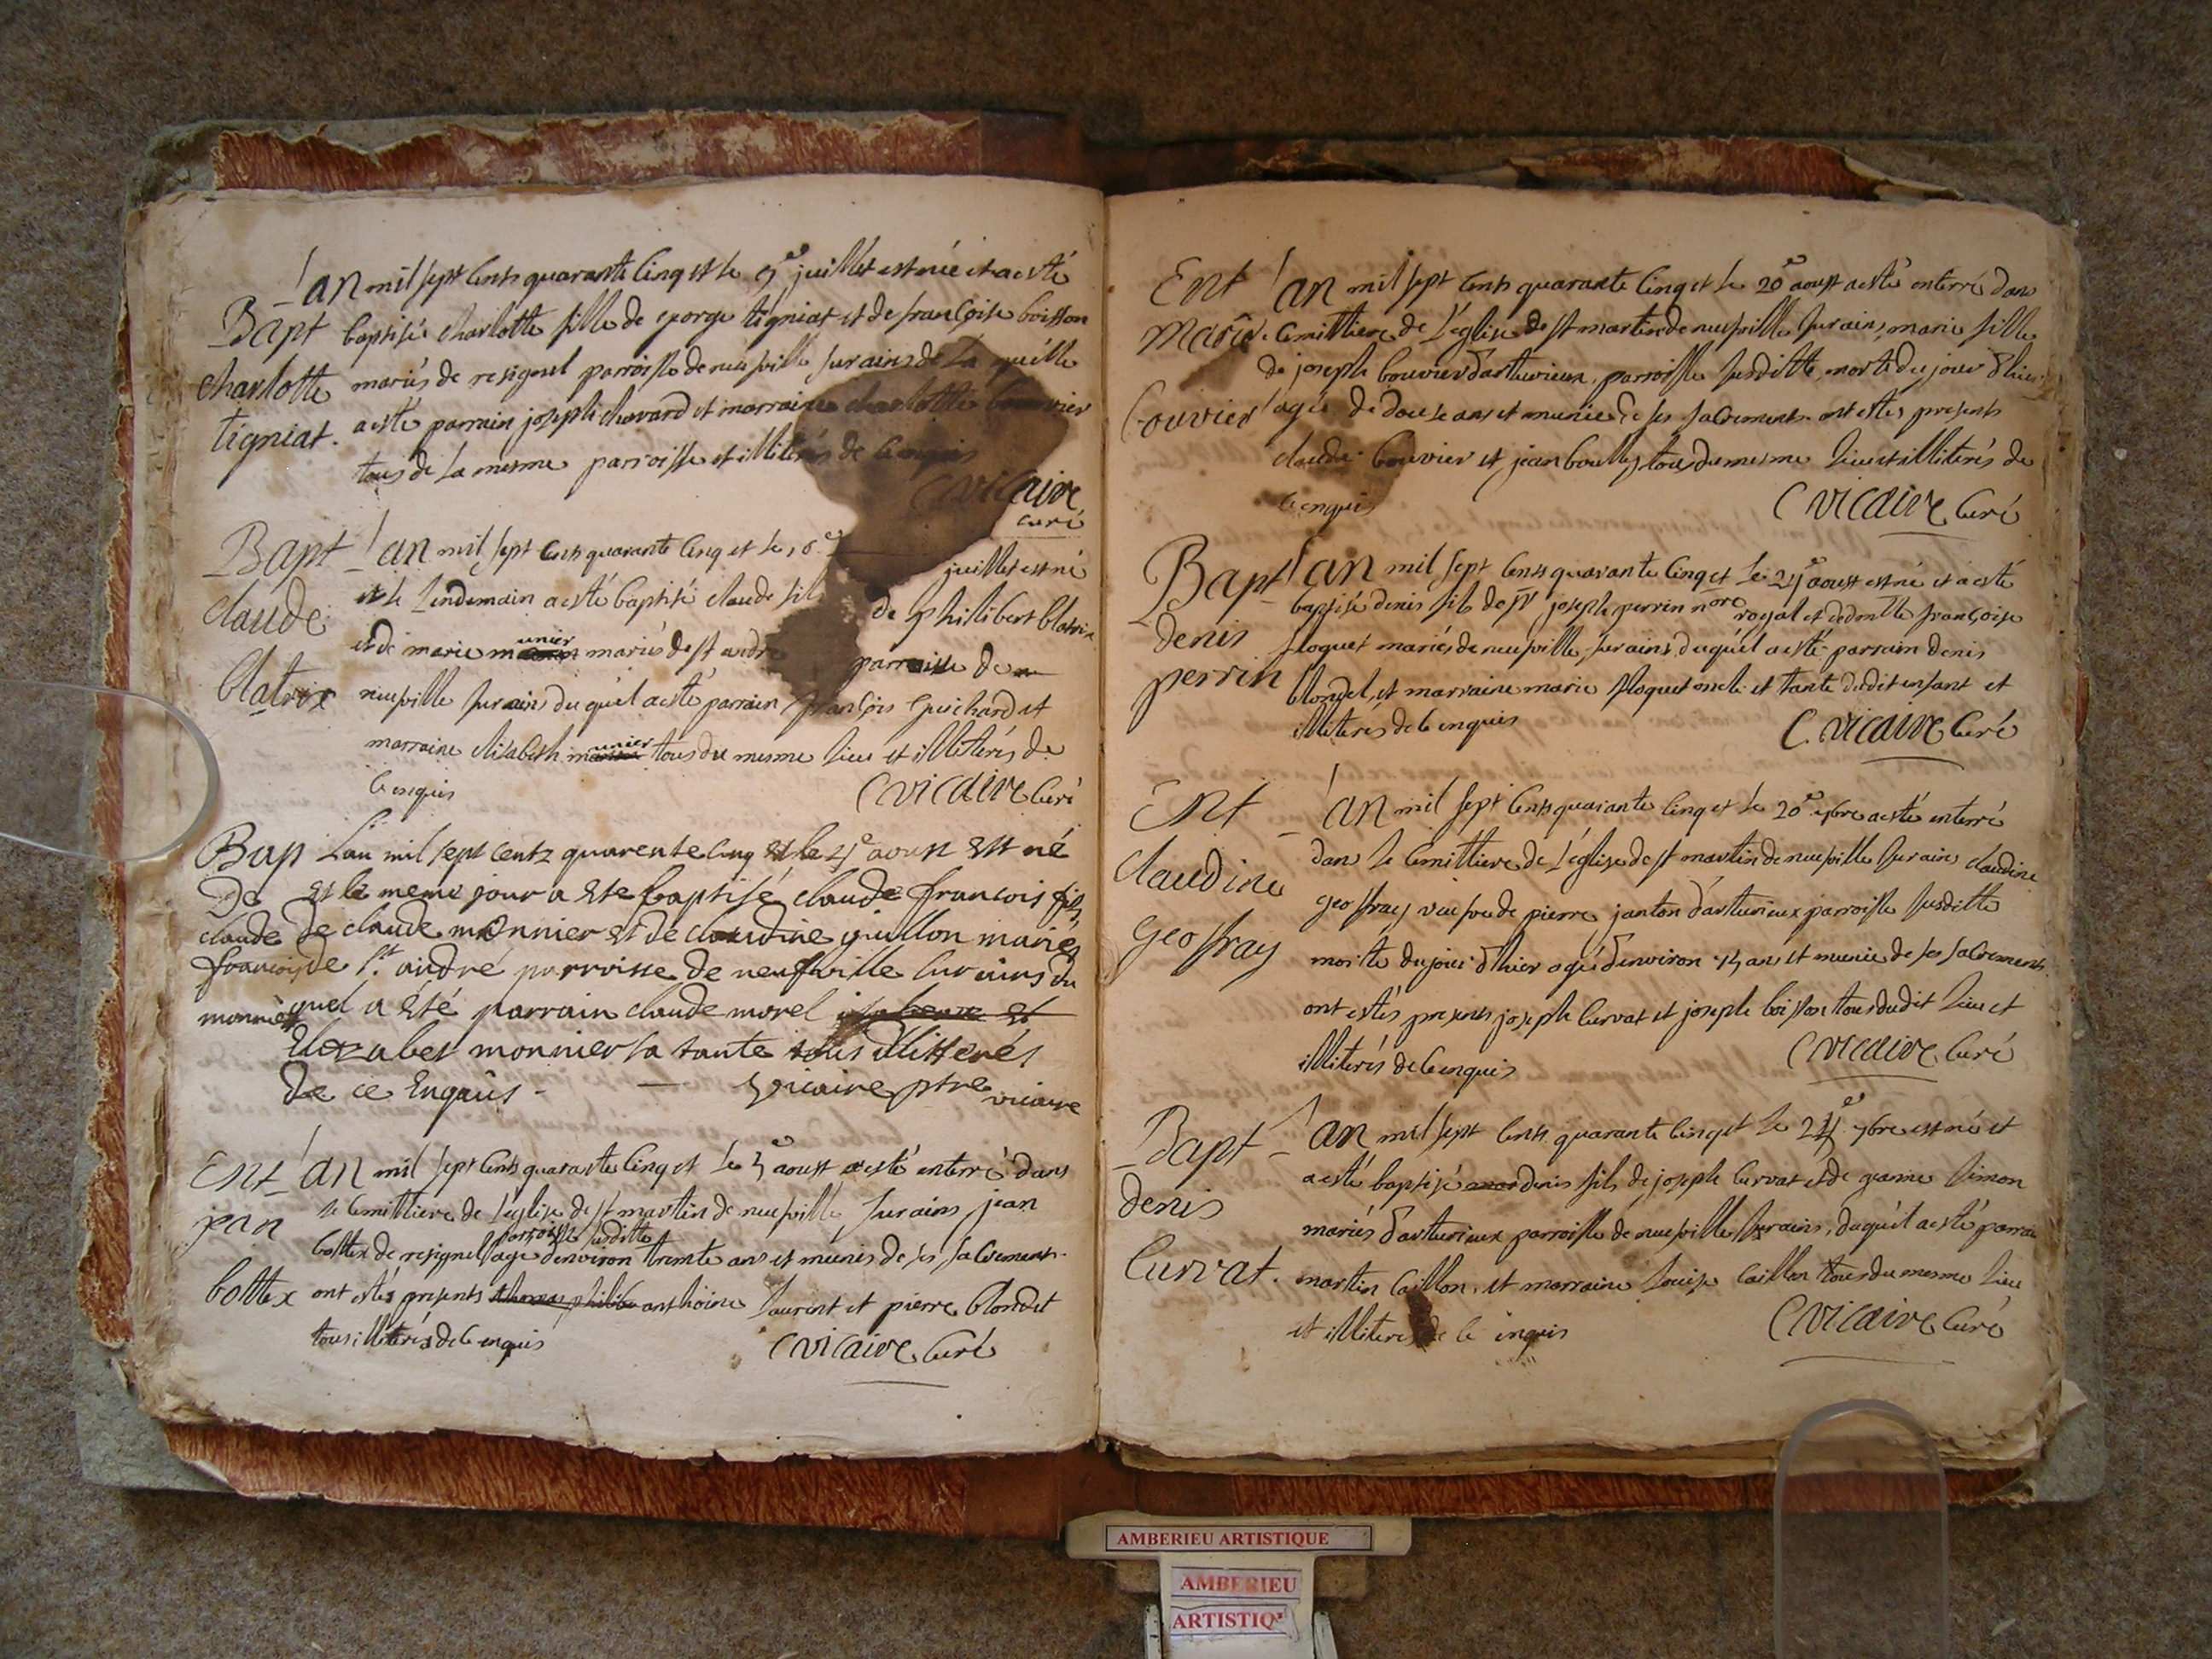 Bapt
charlotte
tigniat.
L'an mil sept cents quarante cinq et le juillet est née et a esté
baptisée charlotte fille de george tigniat et de françoise boisson
mariés de resignel parroisse de neufville sur ains de la quelle
a esté parrain joseph chavard et marraine charlotte bouvier
tous de la mesme parroisse et illiterés de ce enquis
C vicaire
curé
Bapt
claude
Clatrix
L'an mil sept cents quarante cinq et le juillet est né
et le lendemain a esté baptisé claude fil de philibert Clatrix
et de marie munier mariés de st andré parroisse de
neufville sur ains du quel a esté parrain françois guichard et
marraine elisabeth munier tous du mesme lieu et illiterés de
ce enquis
C vicaire Curé
Bap
De
claude
francois
monnier
L'an mil sept centz quarente cinq et le aoust est né
et le meme jour a ete baptisé claude francois fils
de claude monnier et de claudine guillon mariés
de st. andré parroisse de neufville sur ains du
quel a été parrain claude morel
Elizabet monnier sa tante tous illitterés
de ce enquis - vicaire ptre vicaire
Ent
jean
bottex
L'an mil sept cents quarante cinq et le aoust a esté enterré dans
le cemittiere de l'église de st martin de neufville sur ains jean
parroisse susditte
bottex de resignel agé d'environ trente ans et meunis de ses sacrements.
ont estés presents thomas philibe anthoine laurent et pierre blondet
tous illiterés de ce enquis
C vicaire Curé
Ent
marie
bouvier
L'an mil sept cents quarante cinq et le 20e aoust a esté enterré dans
le cemittiere de l'église de st martin de neufville sur ains, marie fille
de joseph bouvier d'arturieux, parroisse susditte, morte du jour d'hier
agée de douse ans et munie de ses sacrements ont estés presents
claude bouvier et jean boully tous du mesme lieu et illiterés de
ce enquis
C vicaire Curé
Bapt
denis
perrin
L'an mil sept cents quarante cinq et le aoust est né et a esté
baptisé denis fils de sr joseph perrin nore royal et de dmlle françoise
floquet mariés de neufville sur ains, du quel a esté parrain denis
blondel, et marraine marie floquet oncle et tante du dit enfant et
illiteres de ce enquis
C. vicaire Curé
Ent
claudine
geoffray
L'an mil sept cents quarante cinq et le 20e ybre a esté enterré
dans le cemittiere de l'église de st martin de neufville sur ains claudine
geoffray veufve de pierre janton d'arturieux parroisse susditte
morte du jour d'hier agé d'environ ans et munie de ses sacrements.
ont estés presents joseph curvat et joseph boisson tous du dit lieu et
illiterés de ce enquis
C vicaire Curé
Bapt
denis
Curvat.
L'an mil sept cents quarante cinq et le ybre est né et
a esté baptisé denis fils de joseph curvat et de jeanne simon
mariés d'arturieux parroisse de neufville sur ains, du quel a esté parrain
martin caillon, et marraine louise caillon tous du mesme lieu
et illiteres de ce enquis
C vicaire Curé
AMBERIEU ARTISTIQUE
AMBERIEU
ARTISTIQ